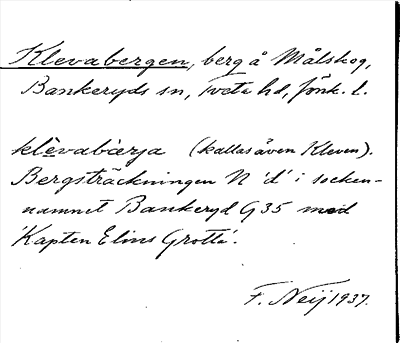 Klevabergen, berg å Målskog,
Bankeryds sn, Tveta hd, Jönk. l.
klèvabàrja (kallas även Kleven).
Bergsträckningen N 'd' i socken-
namnet Bankeryd G 35 med
'Kapten Elins Grotta'.
F. Neij 1937.